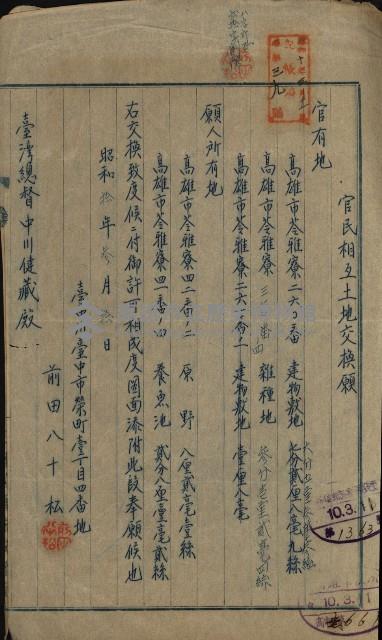 官民相互土地交換願
官有地
高雄市苓雅寮二六〇番 建物敷地 七分貳厘八毫九絲
高雄市苓雅寮 三〇番四 雜種地 參分七厘貳毫四絲
高雄市苓雅寮二六 番ノ一 建物敷地 壹厘八毫
願人所有地
高雄市苓雅寮四二番ノ二 原野 八厘貳毫壹絲
高雄市苓雅寮四一番ノ四 養魚池 貳分八厘壹毫貳絲
右交換致度候ニ付御許可相成度圖面添附此段奉願候也
昭和拾年參月 日
臺中市榮町壹丁目四番地
前田八十松
臺灣總督中川健藏殿
三九
10.3.11
1363
10.3.1